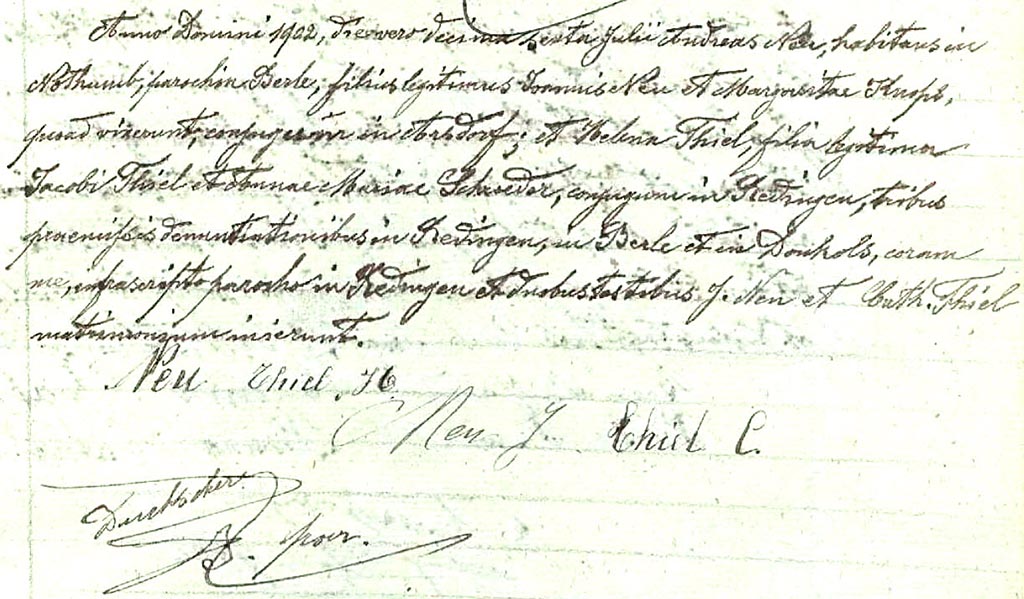 Anno Domini 1902, die vero decima sexta Julii Andreas Neu, habitans in
Nothumb, parochia Berle, filius legitimus Joannis Neu et Margaritae Knops,
quoad vixerunt, conjugum in Arsdorf; et Helena Thiel, filia legitima
Jacobi Thiel et Annae Mariae Schroeder, conjugum in Redingen, tribus
praemissis denuntiationibus in Redingen, in Berle et in Donkols, coram
me, infrascripto parocho in Redingen et duobus testibus J. Neu et Cath. Thiel
matrimonium inierunt.
Neu Thiel H.
Neu J. Thiel C.
Duckscher
par.